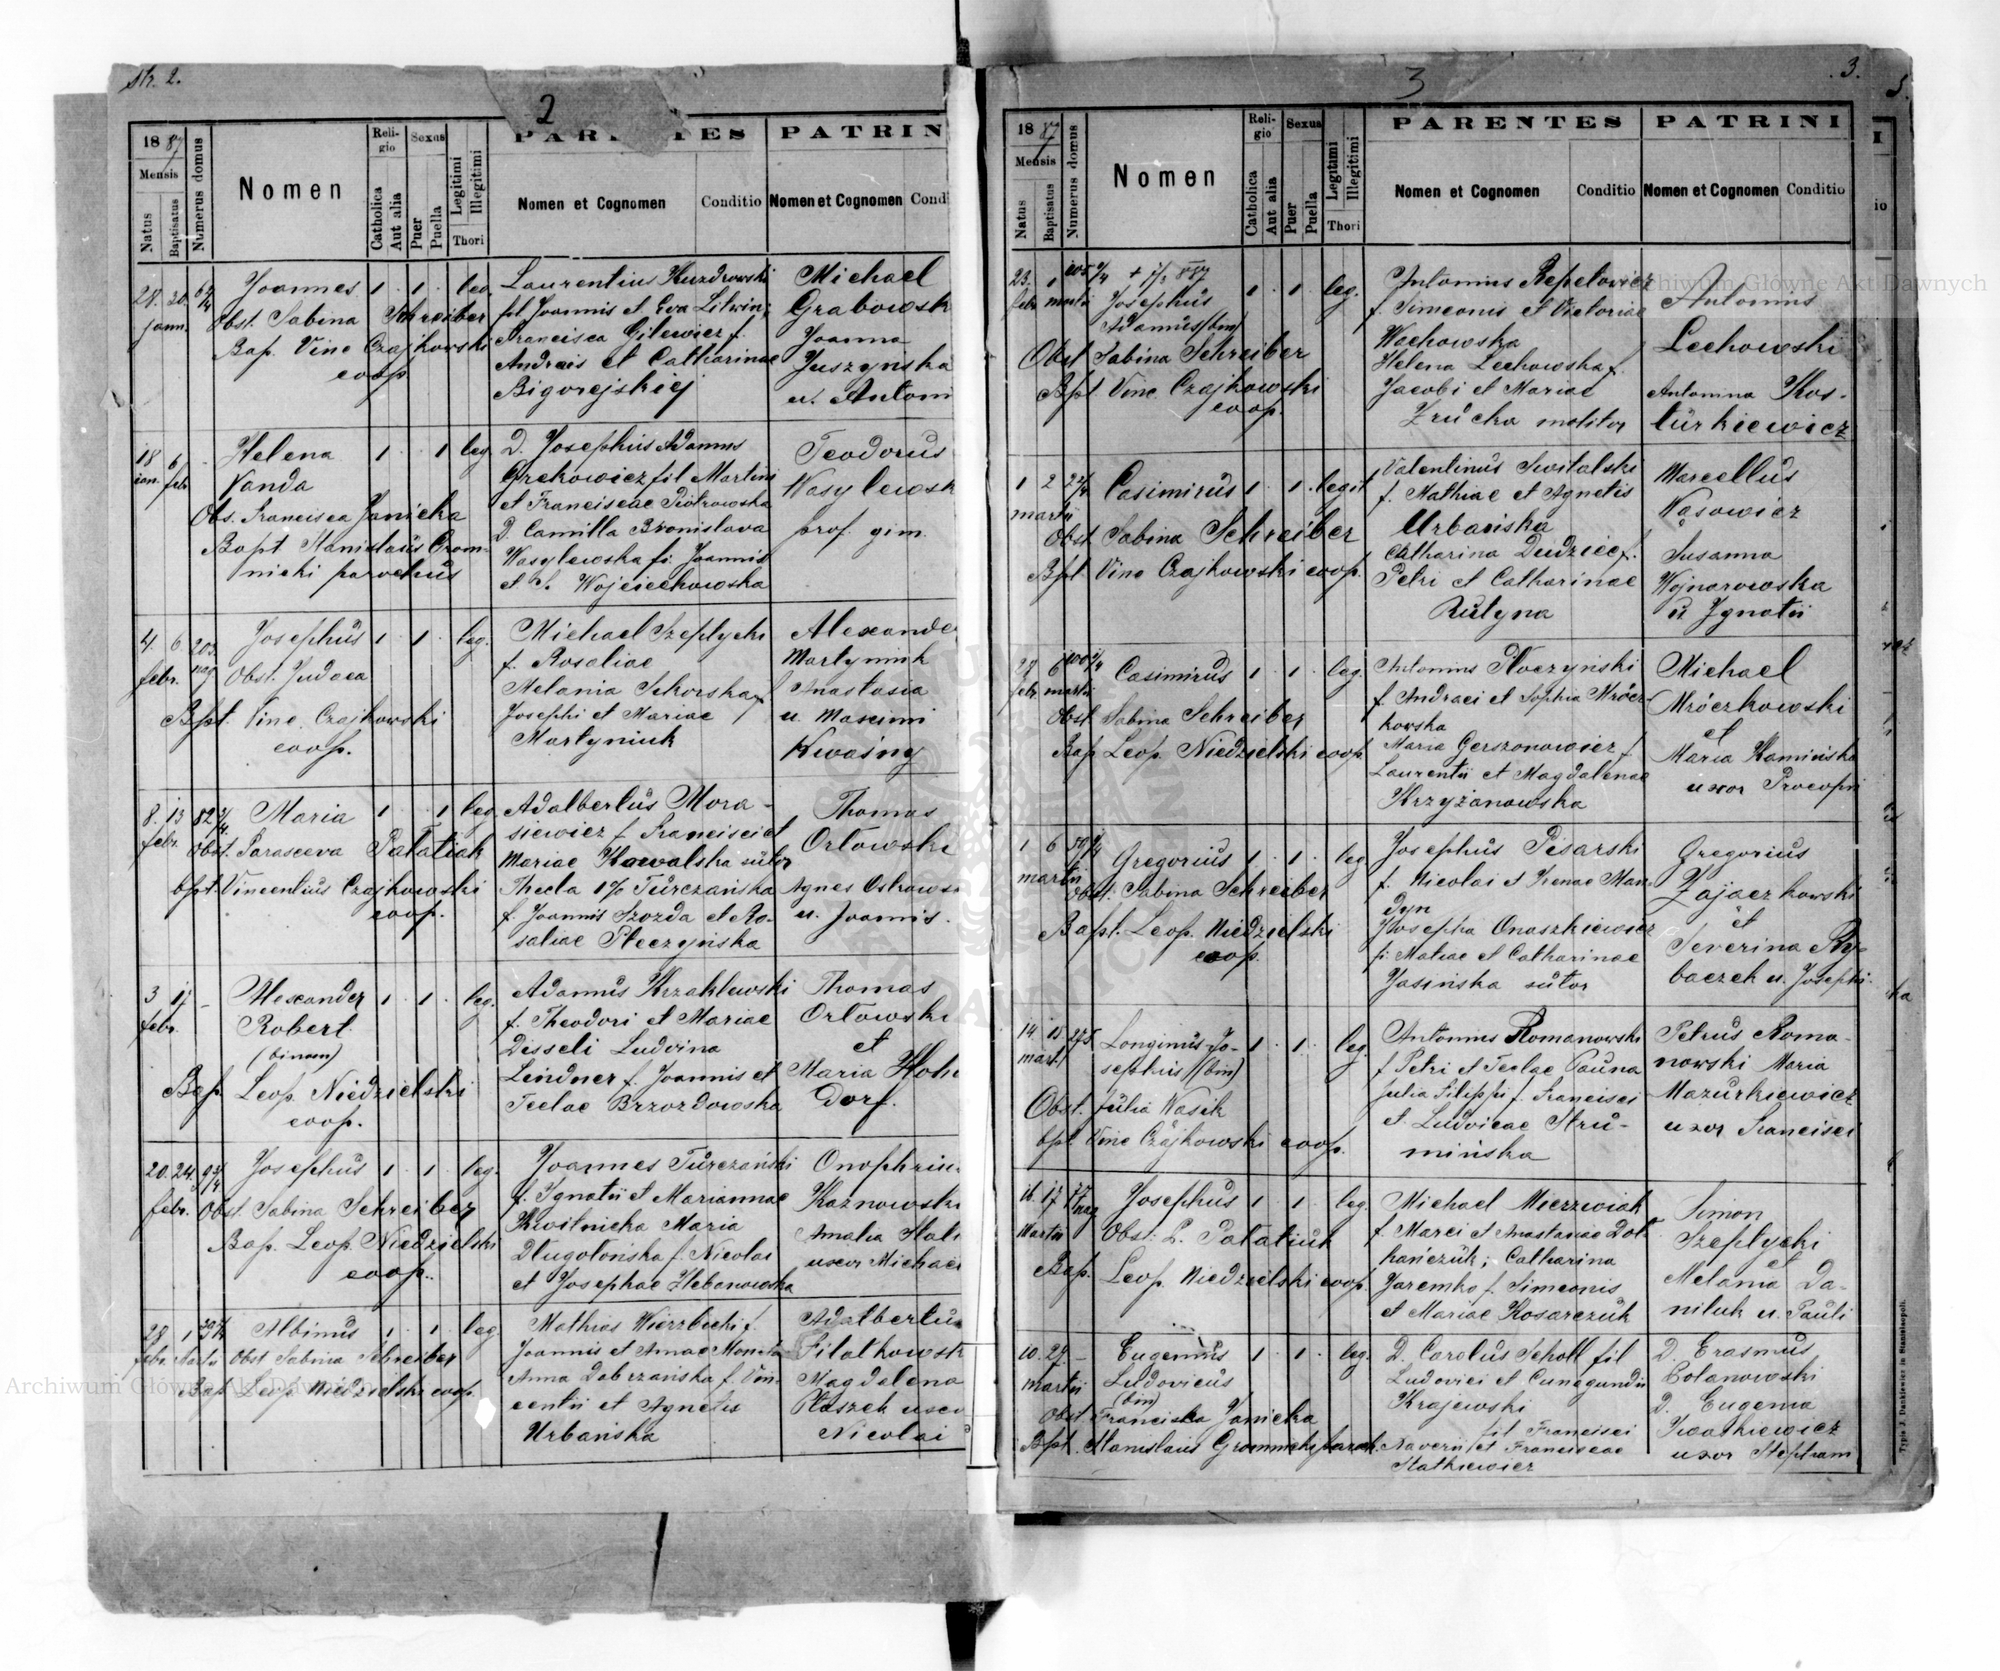 str. 2.
2
18 87
Mensis
Natus
Baptisatus
Numerus domus
Nomen
Religio
Catholica
Aut alia
Sexus
Puer
Puella
Legitimi
Illegitimi
Thori
PARENTES
Nomen et Cognomen
Conditio
PATRIN
Nomen et Cognomen
Cond
28. 30.
jann.
Joannes 1 1 leg.
Obst. Sabina Schreiber
Bap. Vinc Czajkowski
coop.
Laurentius Kuzdrowski
fil Joannis et Eva Litwin;
Francisca Gilewicz f.
Andreis et Catharinae
Bigorejskiej
Michael
Grabowsk
Joanna
Juszyńska
u. Antoni
18 6 -
ian. febr
Helena 1 1 leg
Vanda
Obs. Francisca Janicka
Bapt Stanislaus Grom-
nicki parochus
D. Josephus Adamus
Grekowicz fil Martini
et Franciscae Piotrowska
D. Camilla Bronislava
Wasylewska fi. Joannis
et J. Wojciechowska
Teodorus
Wasylewsk
prof. gim.
4. 6 203
febr. nag
Josephus 1 1 leg.
Obst. Judaea
Bpt. Vinc. Czajkowski
coop.
Michael Szeptycki
f. Rosaliae
Melania Sikorska f
Josephi et Mariae
Martyniuk
Alexande
Martyniuk
Anastasia
u. Maximi
Kwaśny
8. 13 82 3/4
febr.
Maria 1 1 leg
Obst. Parasceva Patatiak
bpt. Vincentius Czajkowski
coop.
Adalbertus Mora-
siewicz f Francisci et
Mariae Kowalska sutor
Thecla 1º/o Turczańska
f. Joannis Szozda et Ro-
saliae Pleczyńska
Thomas
Orłowski
Agnes Ostrows
u. Joannis.
3 17 -
febr.
Alexander 1 1 leg.
Robert
(binom)
Bap. Leop. Niedzielski
coop.
Adamus Krzaklewski
f. Theodori et Mariae
Disseli Ludvina
Leindner f. Joannis et
Teclae Brzozdowska
Thomas
Orłowski
et
Maria Hohe
Dorf.
20. 24.
febr.
Josephus 1 1 leg.
Obst. Sabina Schreiber
Bap. Leop. Niedzielski
coop.
Joannes Turczański
f. Ignatii et Mariannae
Kwitnicka Maria
Długołońska f. Nicolai
et Josephae Hlebanowska
Onophriu
Kaznowski
Amalia Hali
uxor Michaei
28 1
febr. Martii
Albinus 1 1 leg
Obst Sabina Schreiber
Bap. Leop. Niedzielski coop.
Mathias Wierzbicki f.
Joannis et Annae Moneta
Anna Dobrzańska f. Vin-
centii et Agnetis
Urbańska
Adalbertus
Fiłatkowsk
Magdalena
Ptaszek uxor
Nicolai
3
3.
18 87
Mensis
Natus
Baptisatus
Numerus domus
Nomen
Religio
Catholica
Aut alia
Sexus
Puer
Puella
Legitimi
Illegitimi
Thori
PARENTES
Nomen et Cognomen
Conditio
PATRINI
Nomen et Cognomen
Conditio
23. 1
febr. martii
Josephus 1 1 leg.
Adamus (bin)
Obst Sabina Schreiber
Bpt. Vinc. Czajkowski
coop.
Antonius Repetowicz
f. Simeonis et Victoriae
Wachowska
Helena Lechowska f.
Jacobi et Mariae
Zrucka molitor
Antonius
Lechowski
Antonina Kos-
turkiewicz
1 2 2/4
martii
Casimirus 1 1 legit
Obst Sabina Schreiber
Bpt. Vinc Czajkowski coop.
Valentinus Switalski
f. Mathiae et Agnetis
Urbańska
Catharina Dudziec f.
Petri et Catharinae
Rutyna
Marcellus
Wąsowicz
Susanna
Wojnarowska
u Ignatii
28 6 100 3/4
febr. martii
Casimirus 1 1 leg.
Obst Sabina Schreiber
Bap Leop. Niedzielski coop.
Antonius Płoczyński
f. Andraei et Sophia Mrócz-
kowska
Maria Gerszonowicz f
Laurentii et Magdalenae
Krzyżanowska
Michael
Mróczkowski
et
Maria Kamińska
uxor Procopii
1 6
martii
Gregorius 1 1 leg
Obst. Sabina Schreiber
Bapt. Leop. Niedzielski
coop.
Josephus Pisarski
f. Nicolai et Irenae Man-
dyn
Josepha Onaszkiewicz
fi Matiae et Catharinae
Jasińska sutor
Gregorius
Zajaczkowski
et
Severina Ry-
baczek u. Josephi
14 15 275
mart.
Longinus-Jo- 1 1 leg
sephus (bin)
Obst. Julia Wasik
bpt. Vinc Czajkowski coop.
Antonius Romanowski
f Petri et Teclae Pauna
Julia Filippi f. Francisci
et Ludvicae Stru-
mińska
Petrus Roma-
nowski Maria
Mazurkiewicz
uxor Francisci
16 17 77
Martii nag
Josephus 1 1 leg.
Obst. P. Patatiuk
Bap. Leop. Niedzielski coop.
Michael Mierzwiak
f. Marci et Anastasiae Doł-
hańczuk; Catharina
Jaremko f. Simeonis
et Mariae Kosarczuk
Simon
Szeptycki
et
Melania Da-
niluk u. Pauli
10. 27. -
martii
Eugenius 1 1 leg.
Ludovicus
(bin)
Obst Francisca Janicka
Bpt. Stanislaus Gromnicki paroch.
D. Carolus Scholl fil
Ludovici et Cunegundis
Krajewski
fil Francisci
Xaverii et Franciscae
Statkiewicz
D. Erasmus
Polanowski
D. Eugenia
Iwaśkiewicz
uxor Stephani
Typis J. Dankiewicz in Stanislaopoli.
Archiwum Główne Akt Dawnych
Archiwum Główne Akt Dawnych